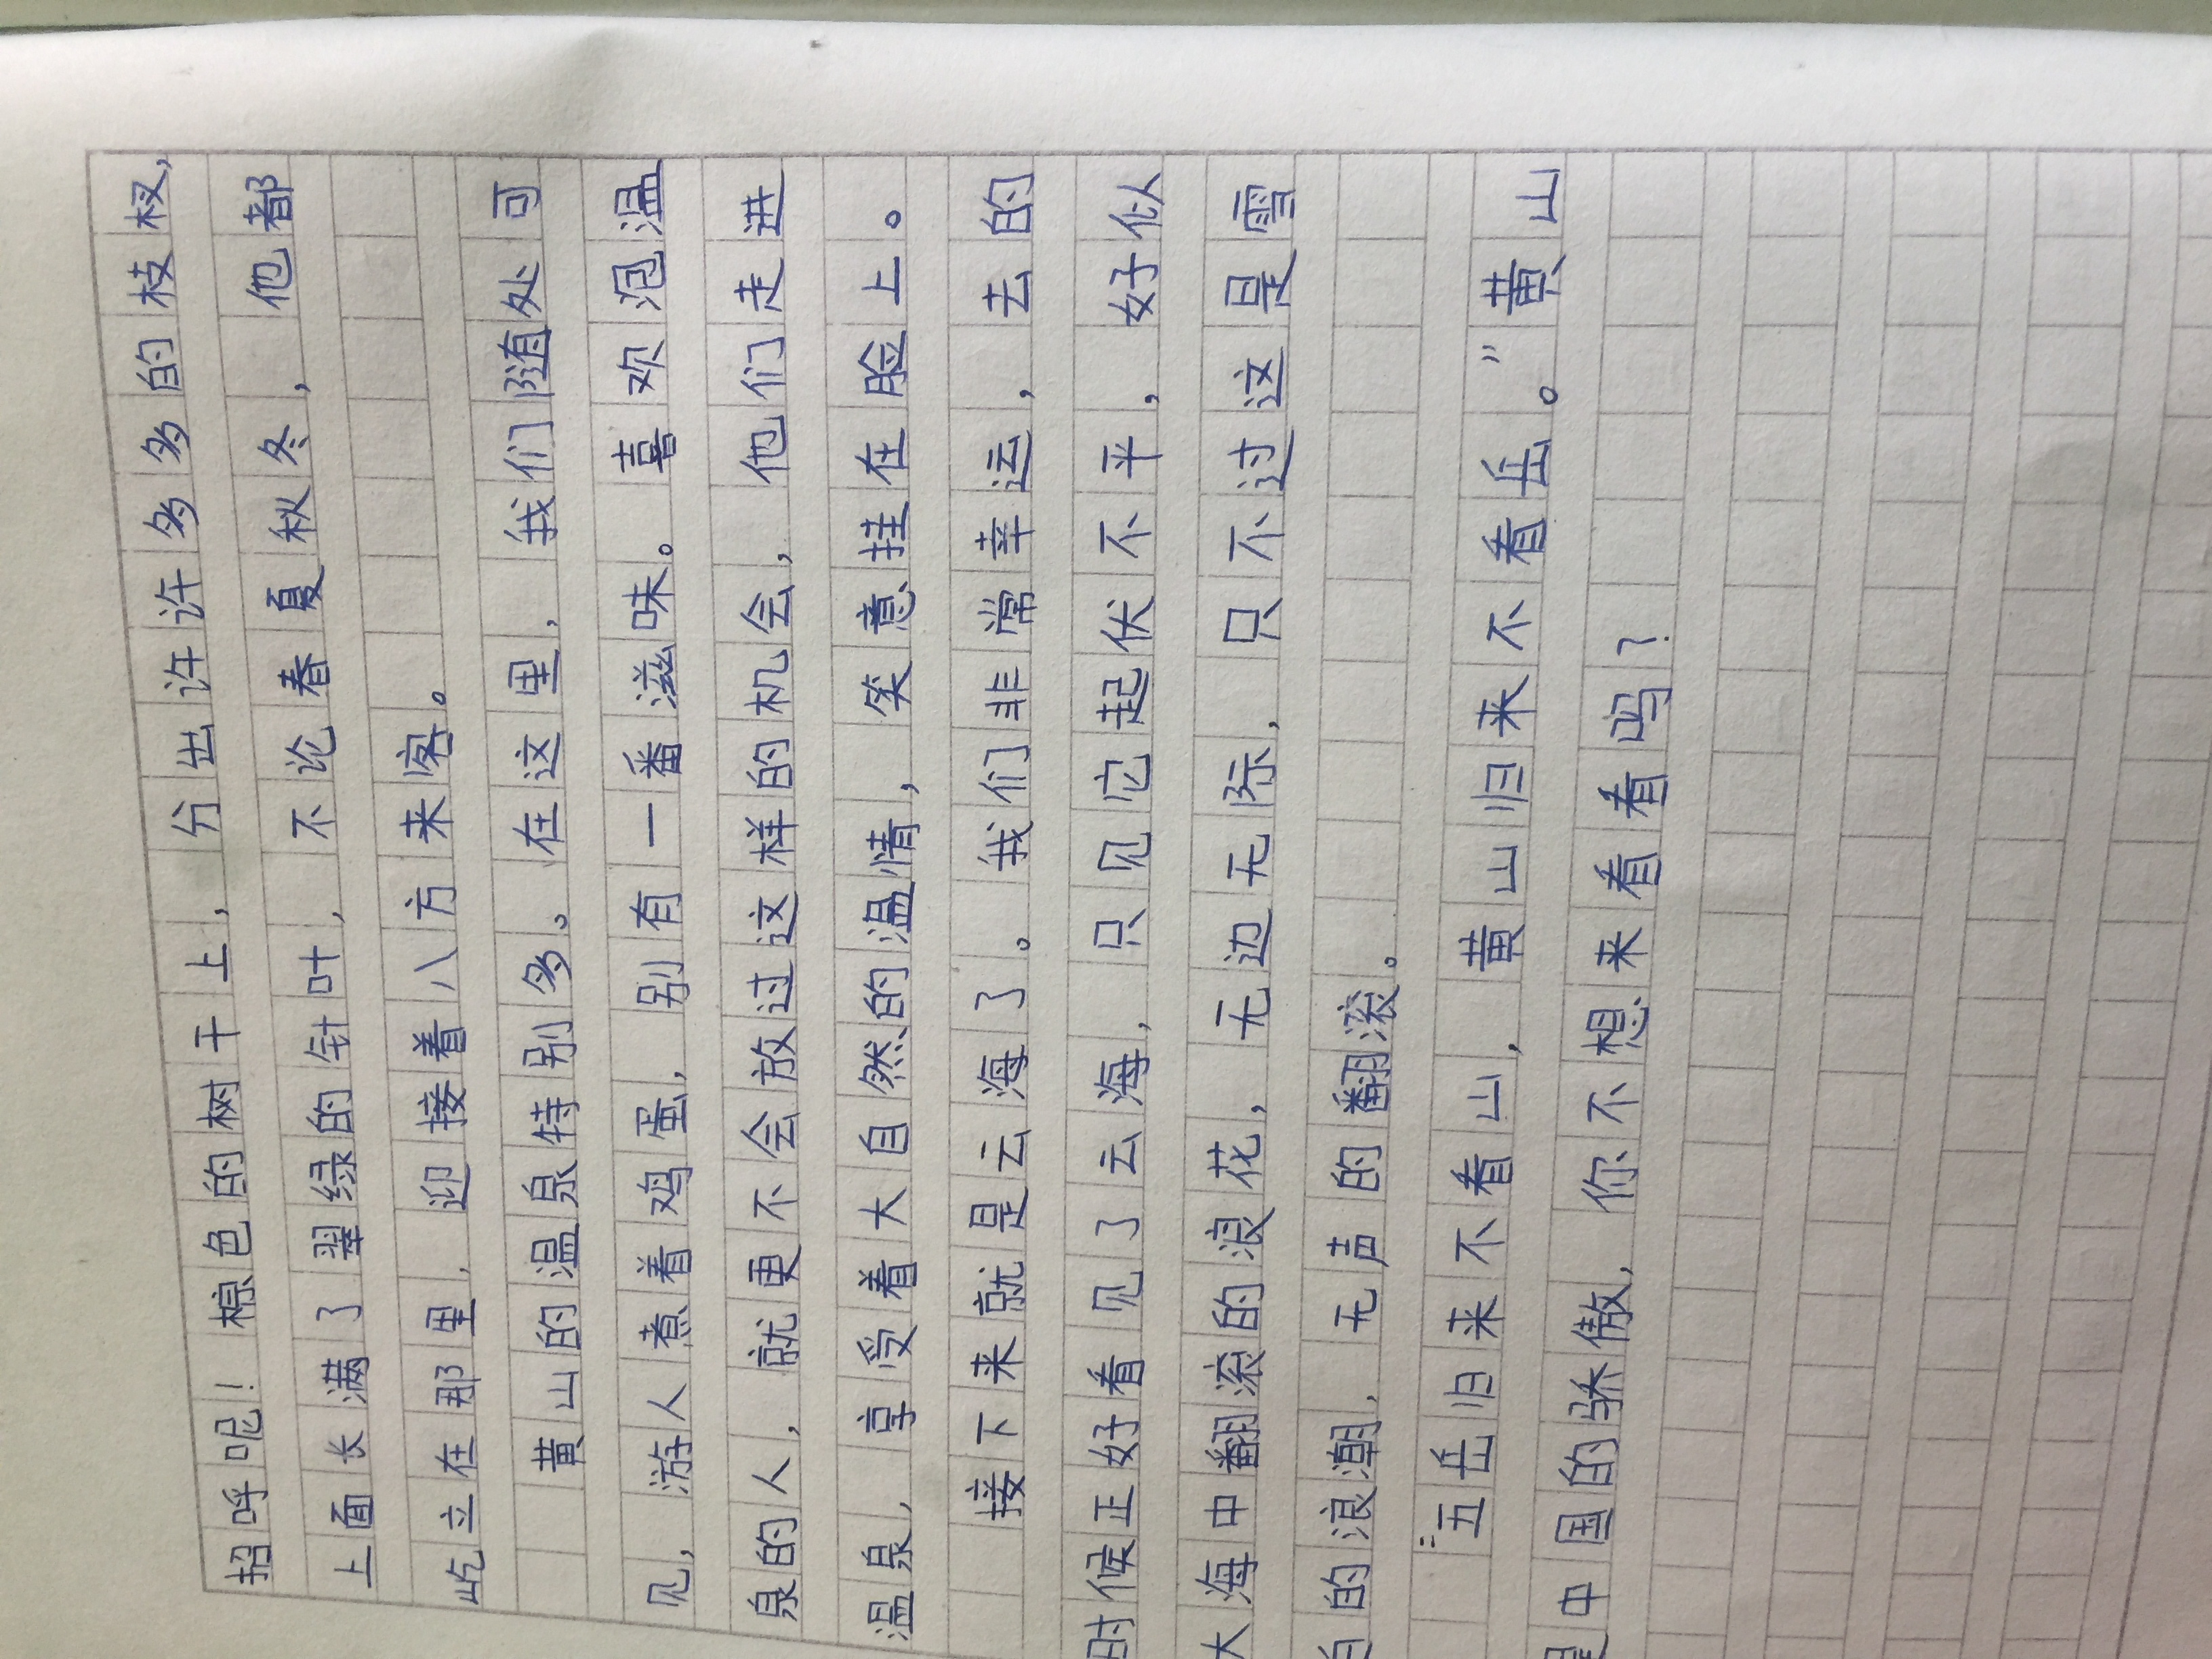 招呼呢！棕色的树干上，分出许许多多的枝杈，
上面长满了翠绿的针叶，不论春夏秋冬，他都
屹立在那里，迎接着八方来客。
黄山的温泉特别多。在这里，我们随处可
见，游人煮着鸡蛋，别有一番滋味。喜欢泡温
泉的人，就更不会放过这样的机会，他们走进
温泉，享受着大自然的温情，笑意挂在脸上。
接下来就是云海了。我们非常幸运，去的
时候正好看见了云海，只见它起伏不平，好似
大海中翻滚的浪花，无边无际，只不过这是雪
白的浪潮，无声的翻滚。
“五岳归来不看山，黄山归来不看岳。”黄山
是中国的骄傲，你不想来看看吗？